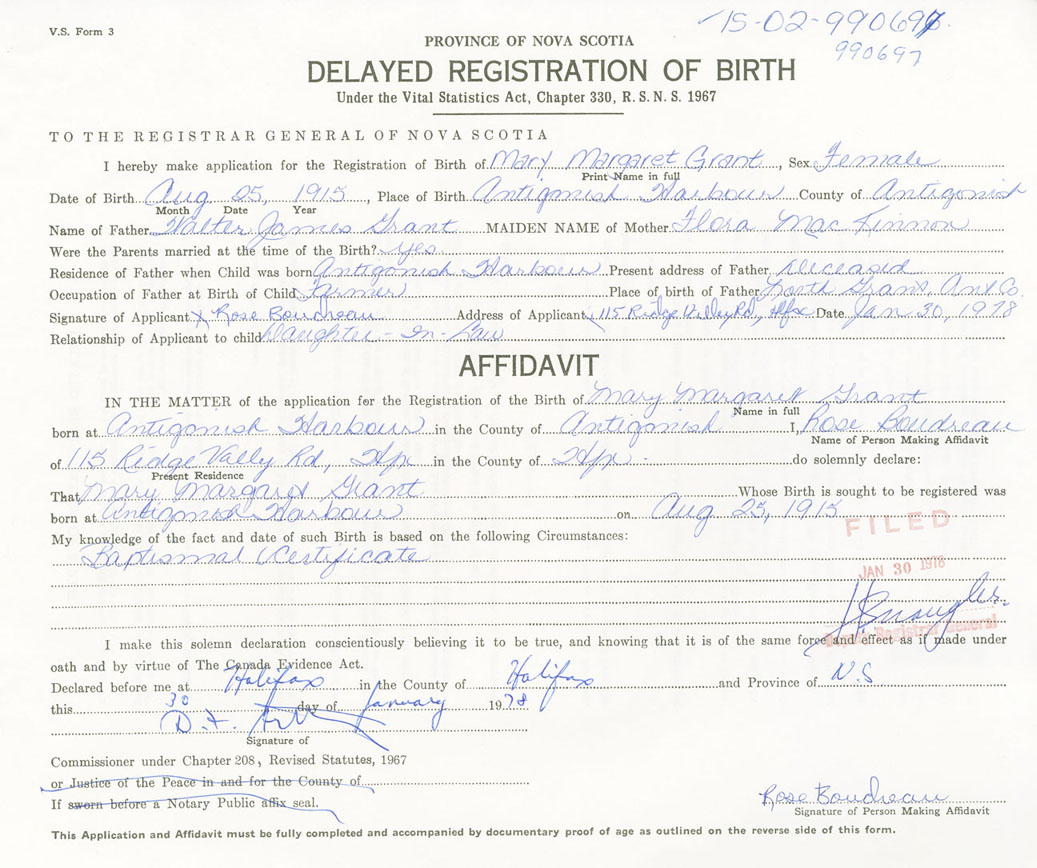 V.S. Form 3
15-02-990697.
990697
PROVINCE OF NOVA SCOTIA
DELAYED REGISTRATION OF BIRTH
Under the Vital Statistics Act, Chapter 330, R. S. N. S. 1967
TO THE REGISTRAR GENERAL OF NOVA SCOTIA
I hereby make application for the Registration of Birth of Mary Margaret Grant, Sex Female
Print Name in full
Date of Birth Aug 25, 1915, Place of Birth Antigonish Harbour County of Antigonish
Month Date Year
Name of Father Walter James Grant MAIDEN NAME of Mother Flora Mac Kinnon
Were the Parents married at the time of the Birth? Yes
Residence of Father when Child was born Antigonish Harbour Present address of Father Deceased
Occupation of Father at Birth of Child Farmer Place of birth of Father North Grant, Ant Co.
Signature of Applicant x Rose Boudreau Address of Applicant 115 Ridge Valley Rd, Hfx Date Jan 30, 1978
Relationship of Applicant to child Daughter-In-Law
AFFIDAVIT
IN THE MATTER of the application for the Registration of the Birth of Mary Margaret Grant
Name in full
born at Antigonish Harbour in the County of Antigonish I, Rose Boudreau
Name of Person Making Affidavit
of 115 Ridge Vally Rd, Hfx in the County of Hfx - do solemnly declare:
Present Residence
That Mary Margaret Grant Whose Birth is sought to be registered was
born at Antigonish Harbour on Aug 25, 1915
FILED
My knowledge of the fact and date of such Birth is based on the following Circumstances:
Baptismal Certificate
JAN 30 1978
Deputy Registrar General
I make this solemn declaration conscientiously believing it to be true, and knowing that it is of the same force and effect as if made under
oath and by virtue of The Canada Evidence Act.
Declared before me at Halifax in the County of Halifax and Province of N.S
this 30 day of January 1978
Signature of
Commissioner under Chapter 208, Revised Statutes, 1967
or Justice of the Peace in and for the County of
If sworn before a Notary Public affix seal.
Rose Boudreau
Signature of Person Making Affidavit
This Application and Affidavit must be fully completed and accompanied by documentary proof of age as outlined on the reverse side of this form.